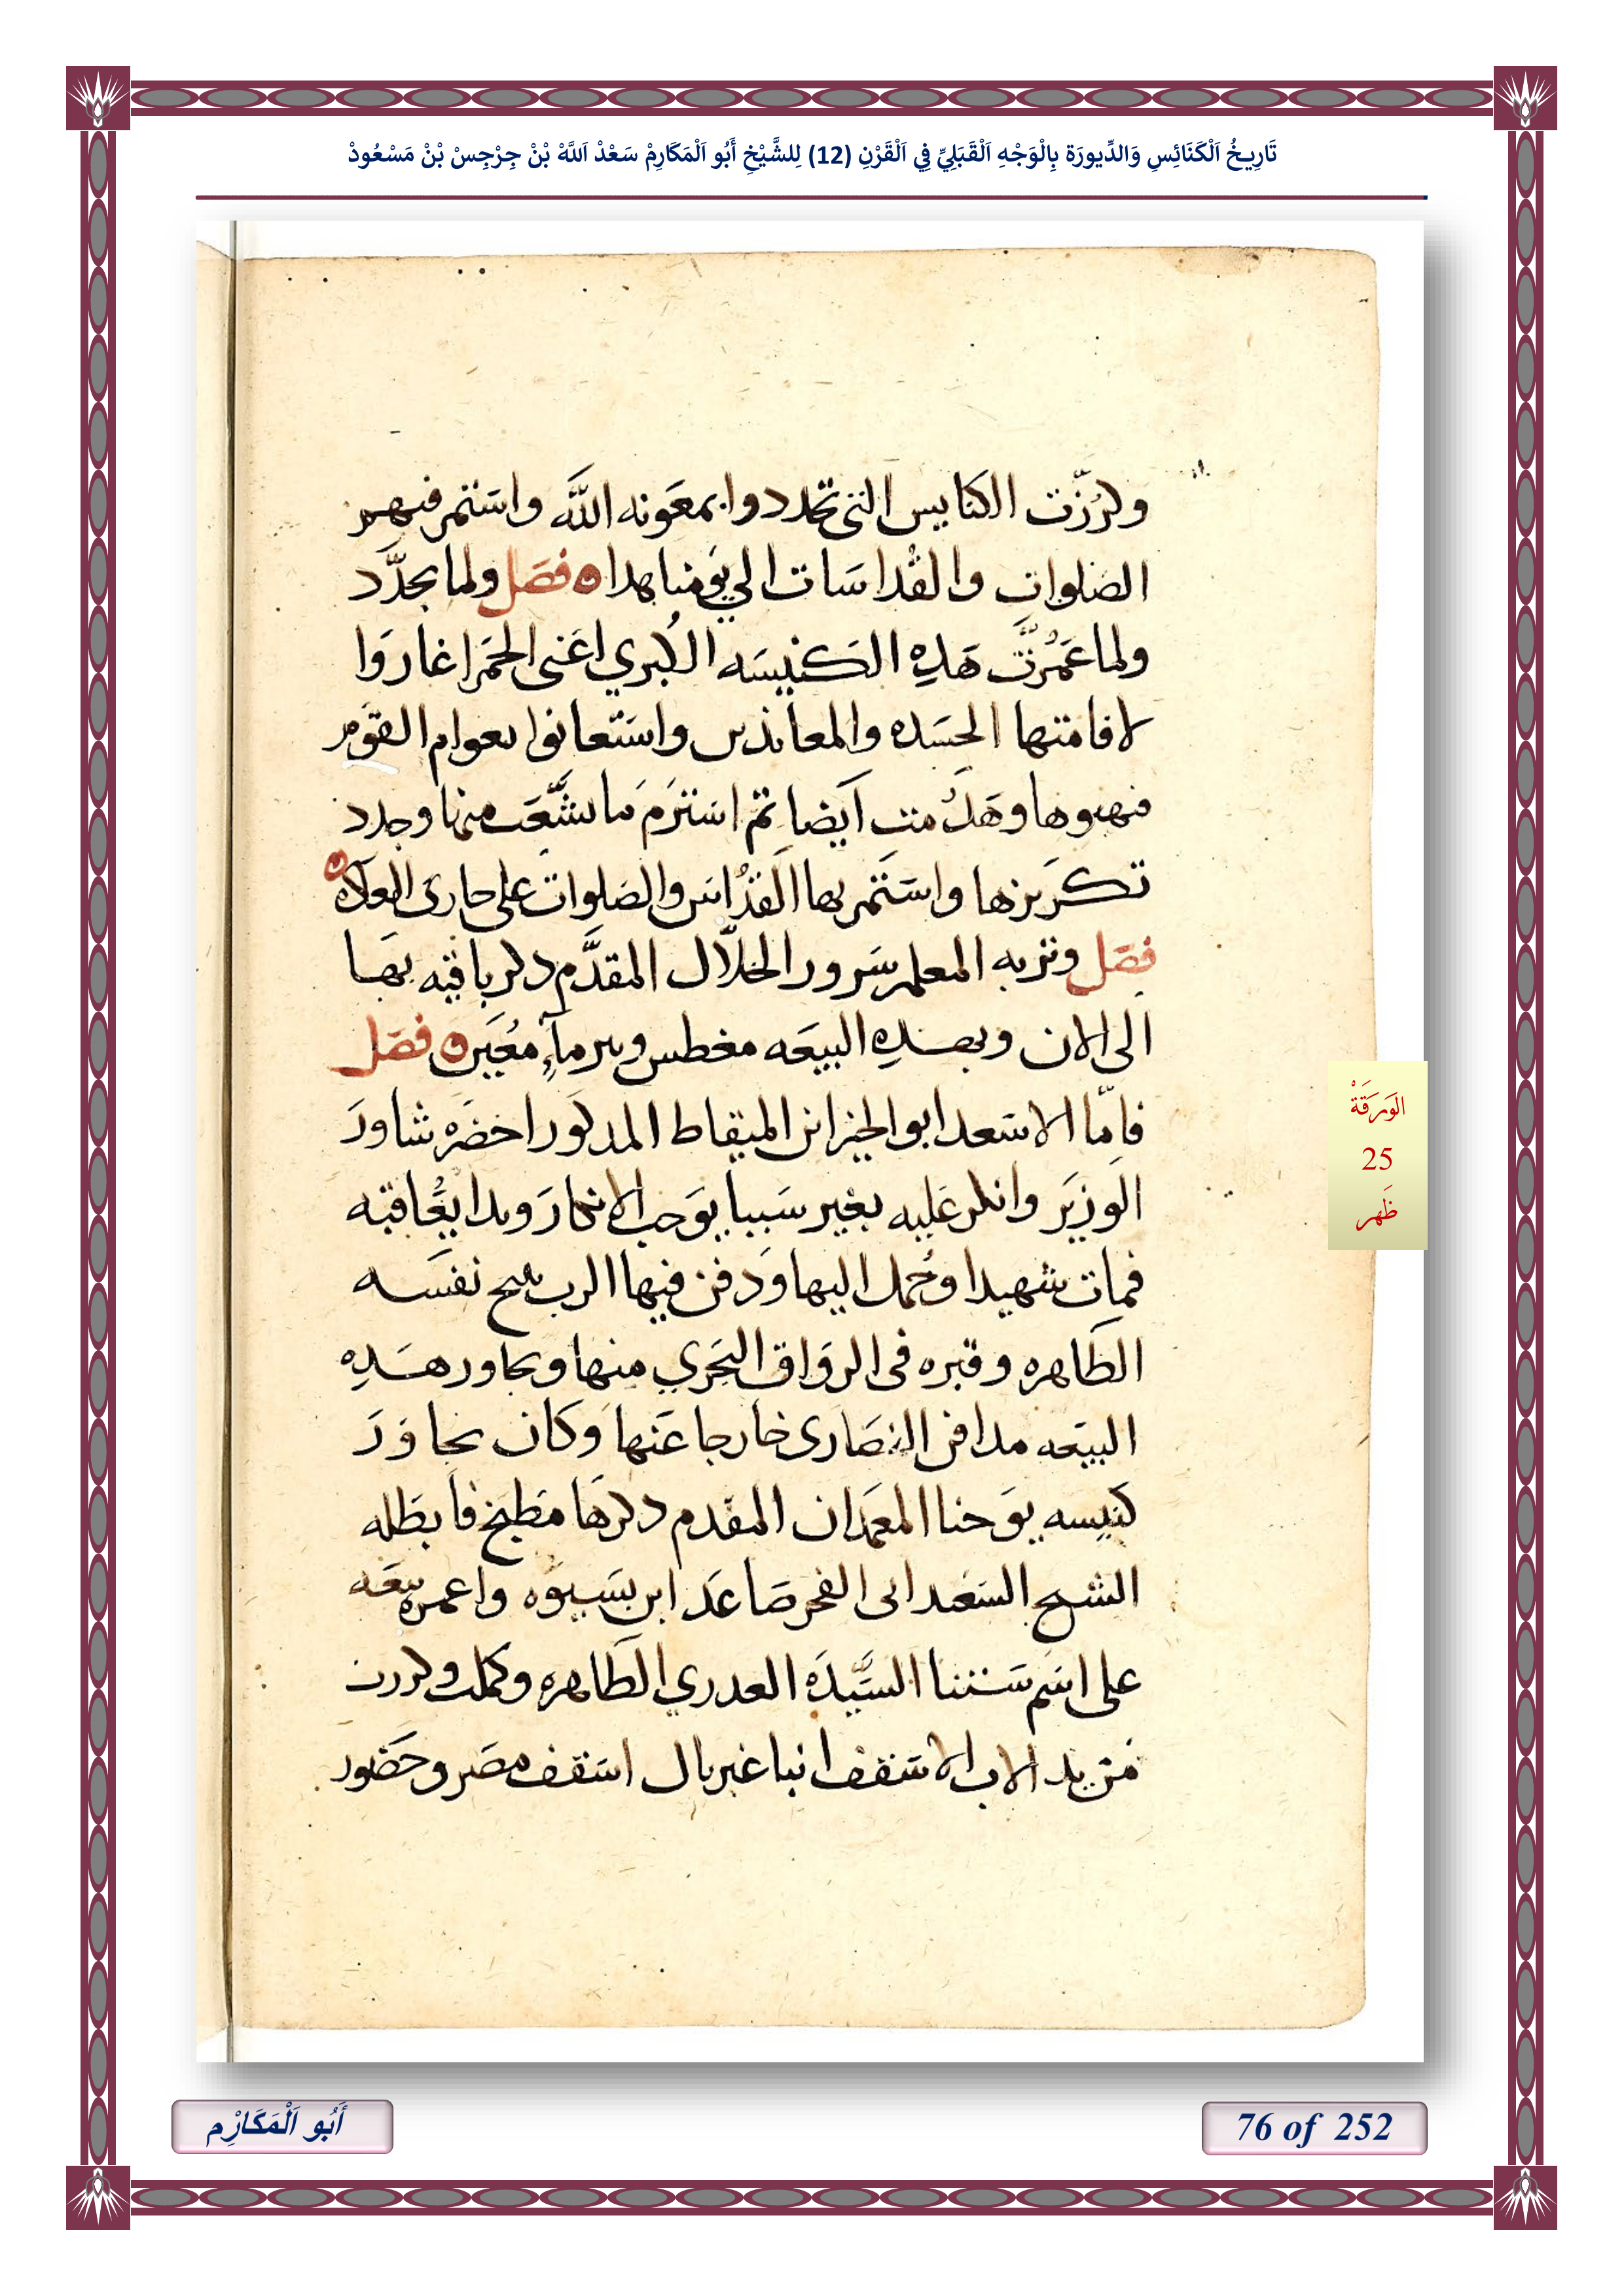 تَارِيخُ اَلْكَنَائِسِ وَالدِّيورَة بِالْوَجْهِ اَلْقَبَلِيِّ فِي اَلْقَرْنِ (12) لِلشَّيْخِ أَبُو اَلْمَكَارِمْ سَعْدْ اَللَّهْ بْنْ جِرْجِسْ بْنْ مَسْعُودْ
وكرزت الكنايس التى تجددوا بمعونه الله واستمر فيهم
الصلوات والقداسات الي يومنا هدا فصل ولما تجدد
ولما عمرت هده الكنيسه الكبري اعنى الحمرا غاروا
لاقامتها الحسده والمعاندين واستعانوا بعوام القوم
فنهبوها وهدمت ايضا ثم استرم ما تشعث منها وجدد
تكريزها واستمر بها القداس والصلوات على جارى العاده
فصل وتربه المعلم سرور الجلال المقدم دكر باقيه بها
الى الان وبهده البيعه مغطس وبير مآء معين فصل
فامّا الاسعد ابو الخير ابن الميقاط المدكور احضره شاور
الوزير وانكر عليه بغير سببا يوجب الانكار وبدا يعاقبه
فمات شهيدا وحمل اليها ودفن فيها الرب ينيح نفسه
الطاهره وقبره فى الرواق البحري منها ويجاور هده
البيعه مدافن النصارى خارجا عنها وكان يجاور
كنيسه يوحنا المعمدان المقدم دكرها مطبخ فابطله
الشيخ السعيد ابى الفخر صاعد ابن بسيوه واعمره بيعه
على اسم ستنا السيده العدري الطاهره وكملت وكررت
من يد الاب الاسقف انبا غبريال اسقف مصر وحضور
الوَرَقَةْ
25
ظَهر
أَبُو اَلْمَكَارْمِ
76 of 252